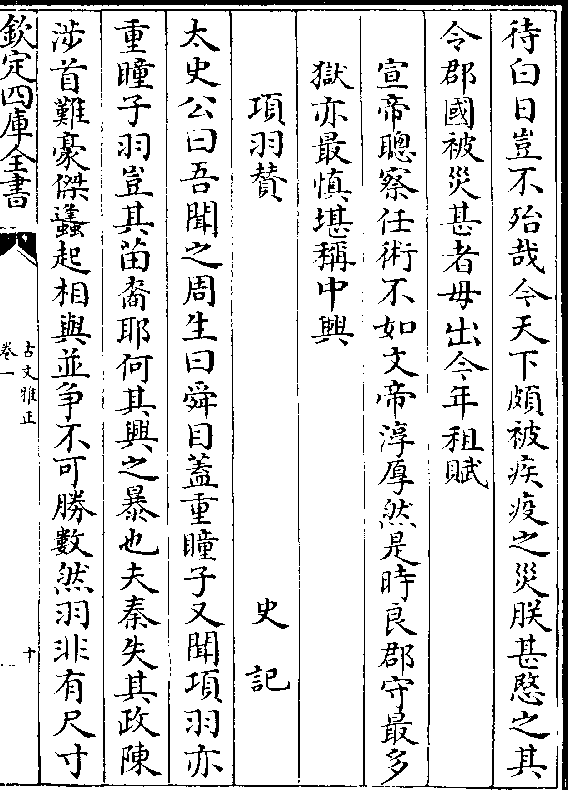 待白日豈不殆哉今天下頗被疾疫之災朕甚愍之其
令郡國被災甚者毋出今年租賦
宣帝聰察任術不如文帝淳厚然是時良郡守最多
獄亦最慎堪稱中興
項羽贊 史記
太史公曰吾聞之周生曰舜目蓋重瞳子又聞項羽亦
重瞳子羽豈其苗裔耶何其興之暴也夫秦失其政陳
涉首難豪傑蠭起相與並爭不可勝數然羽非有尺寸
欽定四庫全書
古文雅正
卷一
十